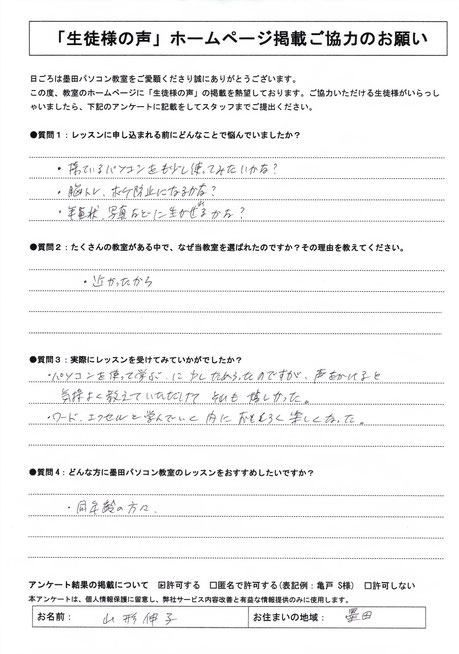 「生徒様の声」ホームページ掲載ご協力のお願い
日ごろは墨田パソコン教室をご愛顧くださり誠にありがとうございます。
この度、教室のホームページに「生徒様の声」の掲載を熱望しております。ご協力いただける生徒様がいらっし
ゃいましたら、下記のアンケートに記載をしてスタッフまでご提出ください。
●質問1:レッスンに申し込まれる前にどんなことで悩んでいましたか?
・持っているパソコンをもう少し使ってみたいかな?
・脳トレ、ボケ防止になるかな?
・年賀状、写真などに生かせれるかな?
●質問2:たくさんの教室がある中で、なぜ当教室を選ばれたのですか?その理由を教えてください。
・近かったから
●質問3:実際にレッスンを受けてみていかがでしたか?
・パソコンを使って学ぶに少しためらったのですが、声をかけると
気持よく教えていただけて とても嬉しかった。
・ワード、エクセルと学んでいく内におもしろく楽しくなった。
●質問4:どんな方に墨田パソコン教室のレッスンをおすすめしたいですか?
・同年齢の方々、
アンケート結果の掲載について ☑許可する □匿名で許可する(表記例:亀戸 S様) □許可しない
本アンケートは、個人情報保護に留意し、弊社サービス内容改善と有益な情報提供のみに使用します。
お名前: 山形伸子 お住まいの地域: 墨田